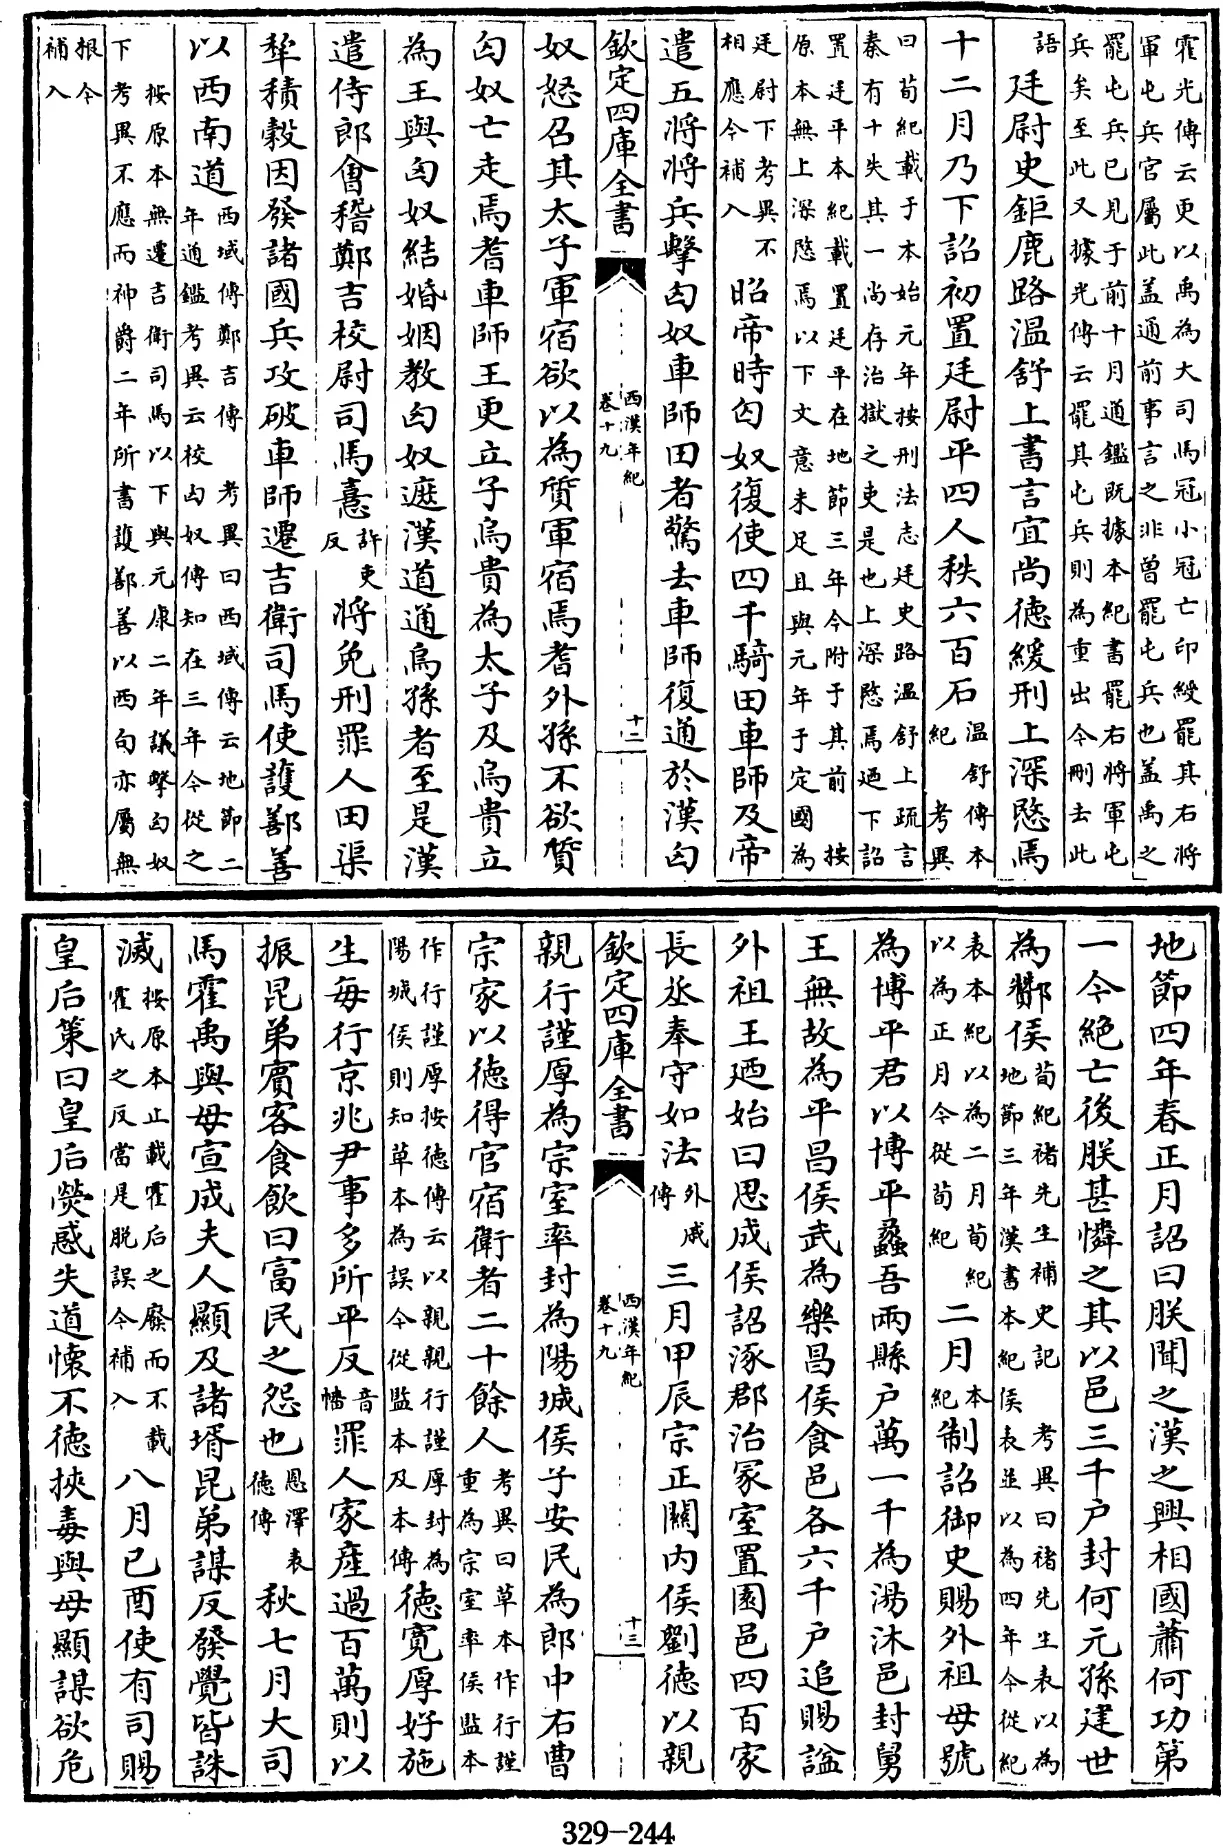 霍光傳云更以禹為大司馬冠小冠亡印綬罷其右將
軍屯兵官屬此盖通前事言之非曾罷屯兵也盖禹之
罷屯兵已見于前十月通鑑既據本紀書罷右將軍屯
兵矣至此又據光傳云罷其屯兵則為重出今刪去此
語 廷尉史鉅鹿路温舒上書言宜尚德緩刑上深愍焉
十二月乃下詔初置廷尉平四人秩六百石 温舒傳本紀 考異
曰荀紀載于本始元年按刑法志廷史路温舒上疏言
秦有十失其一尚存治獄之吏是也上深愍焉廼下詔
置廷平本紀載置廷平在地節三年今附于其前 按
原本無上深愍焉以下文意未足且與元年于定國為
廷尉下考異不相應今補入 昭帝時匈奴復使四千騎田車師及帝
遣五將將兵擊匈奴車師田者驚去車師復通於漢匈
欽定四庫全書 西漢年紀 卷十九 十二
奴怒召其太子軍宿欲以為質軍宿焉耆外孫不欲質
匈奴亡走焉耆車師王更立子烏貴為太子及烏貴立
為王與匈奴結婚姻教匈奴遮漢道通烏孫者至是漢
遣侍郎會稽鄭吉校尉司馬憙許吏反將免刑罪人田渠
犂積穀因發諸國兵攻破車師遷吉衛司馬使護鄯善
以西南道 西域傳鄭吉傳 考異曰西域傳云地節二年通鑑考異云校匈奴傳知在三年今從之
按原本無遷吉衛司馬以下與元康二年議擊匈奴
下考異不應而神爵二年所書護鄯善以西句亦屬無
根今補入
地節四年春正月詔曰朕聞之漢之興相國蕭何功第
一今絶亡後朕甚憐之其以邑三千户封何元孫建世
為酇侯 荀紀褚先生補史記 考異曰褚先生表以為地節三年漢書本紀侯表並以為四年今從紀
表本紀以為二月荀紀以為正月今從荀紀 二月 本紀 制詔御史賜外祖母號
為博平君以博平蠡吾兩縣户萬一千為湯沐邑封舅
王無故為平昌侯武為樂昌侯食邑各六千户追賜謚
外祖王廼始曰思成侯詔涿郡治冡室置園邑四百家
長丞奉守如法 外戚傳 三月甲辰宗正關内侯劉德以親
欽定四庫全書 西漢年紀 卷十九 十三
親行謹厚為宗室率封為陽城侯子安民為郎中右曹
宗家以德得官宿衛者二十餘人 考異曰草本作行謹重為宗室率侯監本
作行謹厚按德傳云以親親行謹厚封為
陽城侯則知草本為誤今從監本及本傳 德寛厚好施
生每行京兆尹事多所平反 音幡 罪人家產過百萬則以
振昆弟賓客食飲曰富民之怨也 恩澤表德傳 秋七月大司
馬霍禹與母宣成夫人顯及諸壻昆弟謀反發覺皆誅
滅 按原本止載霍后之廢而不載霍氏之反當是脱誤今補入 八月已酉使有司賜
皇后策曰皇后熒惑失道懷不德挾毒與母顯謀欲危
329–244